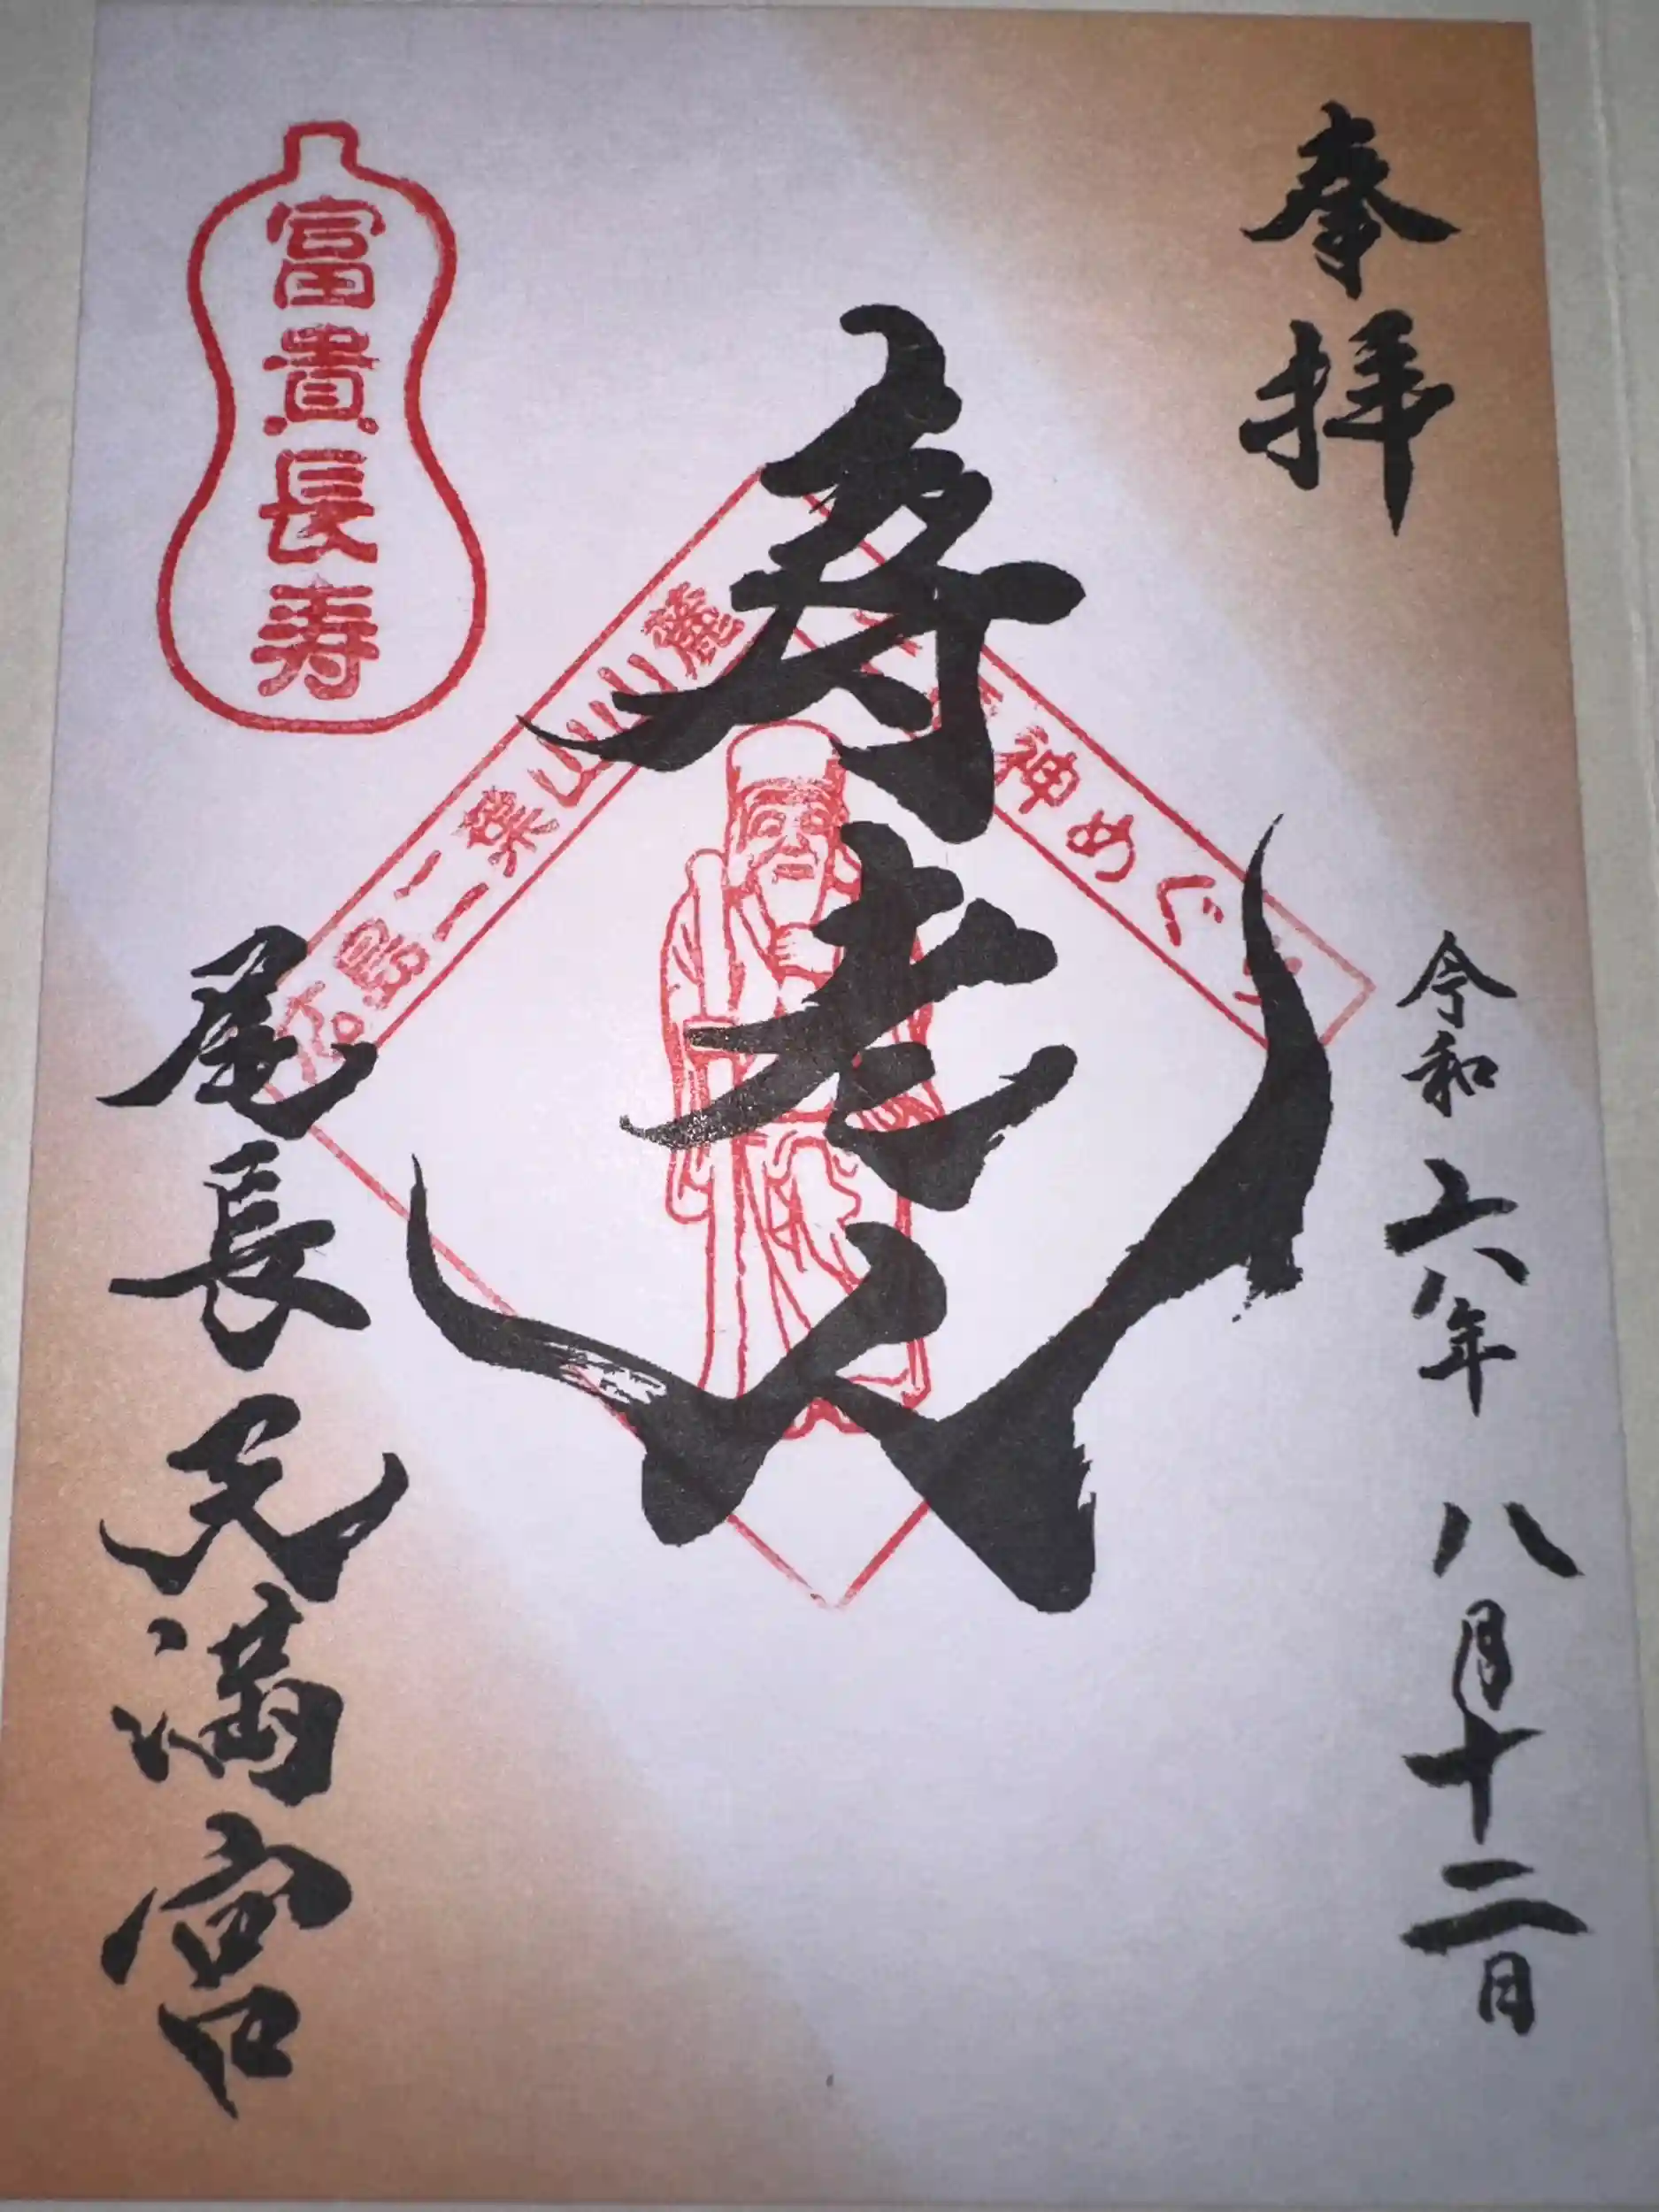 奉拝
令和六年 八月十二日
寿老人
二葉山山麓
神めぐり
富貴長寿
尾長天満宮